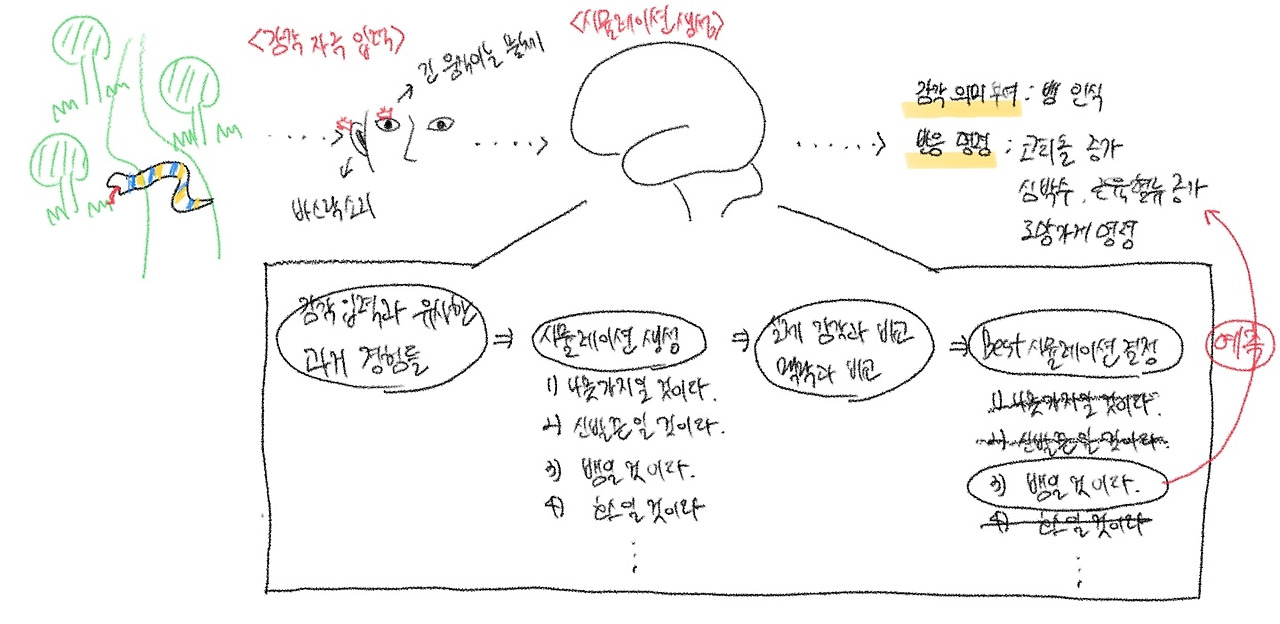 <감각 자극 입력>
긴 움직이는 물체
바스락소리
<시뮬레이션 생성>
감각 의미 부여 : 뱀 인식
반응 명령 : 코티졸 증가
심박수, 근육혈류 증가
도망가게 명령
감각 입력과 유사한
과거 경험들
⇒
시뮬레이션 생성
1) 나뭇가지일 것이다.
2) 신발끈일 것이다.
3) 뱀일 것이다.
4) 호스일 것이다
⇒
실제 감각과 비교
맥락과 비교
⇒
Best 시뮬레이션 결정
1) 나뭇가지일 것이다.
2) 신발끈일 것이다.
3) 뱀일 것이다.
4) 호스일 것이다
예측